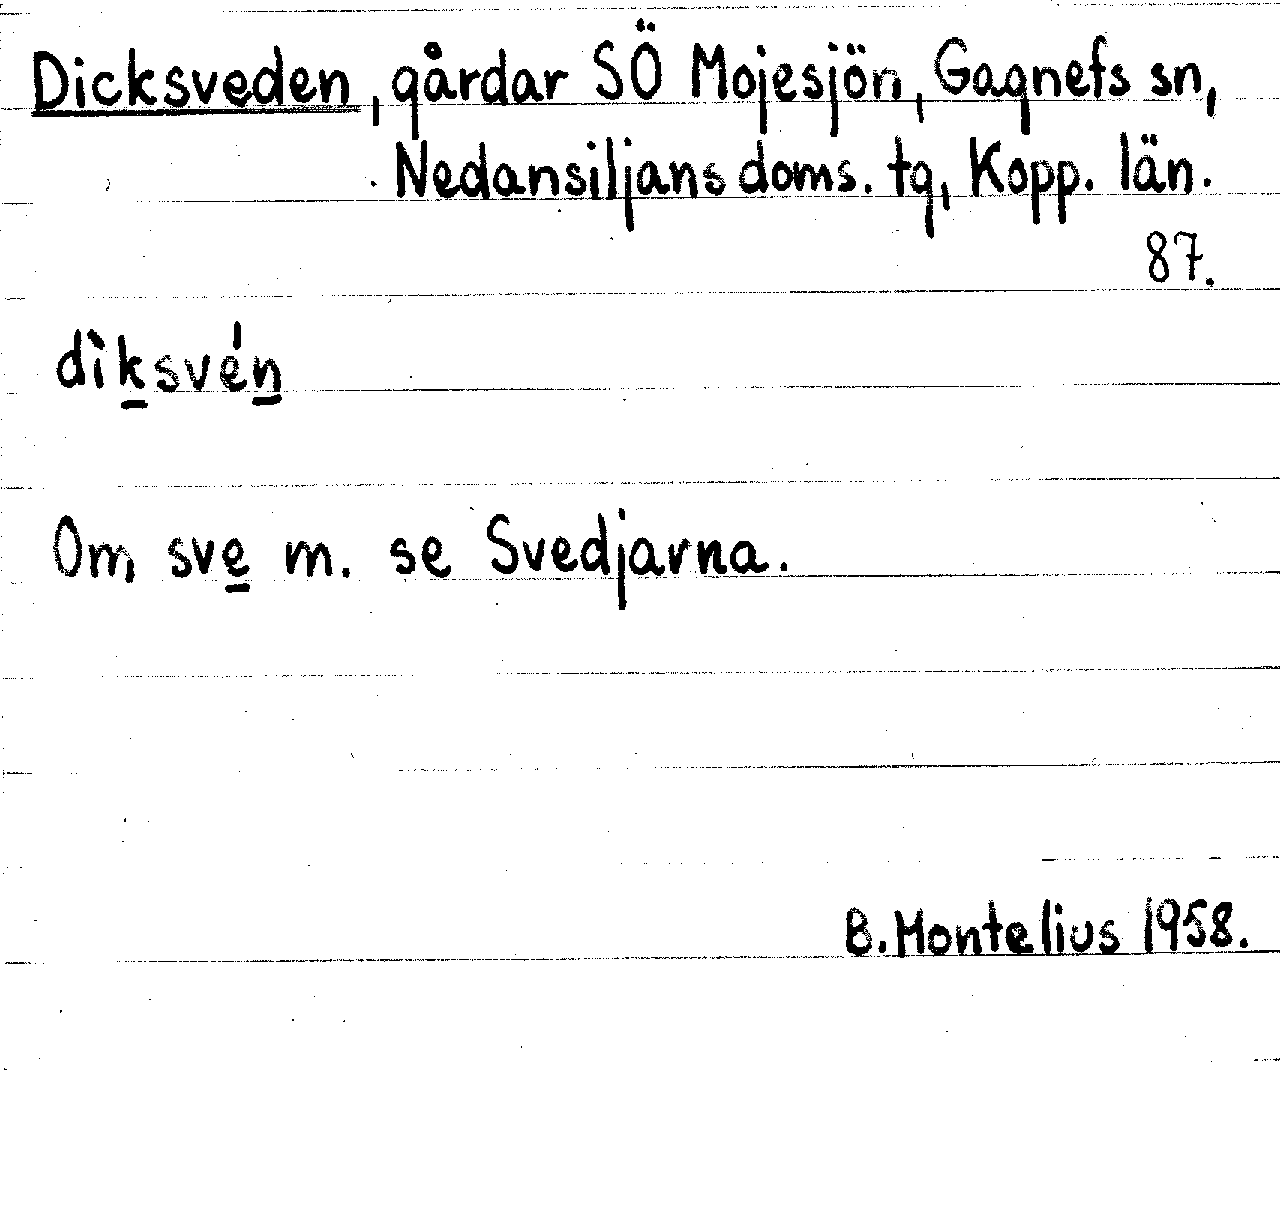 Dicksveden, gårdar SÖ Mojesjön, Gagnefs sn,
Nedansiljans doms. tg, Kopp. län.
87.
dìksvén
Om sve m. se Svedjarna.
B. Montelius 1958.